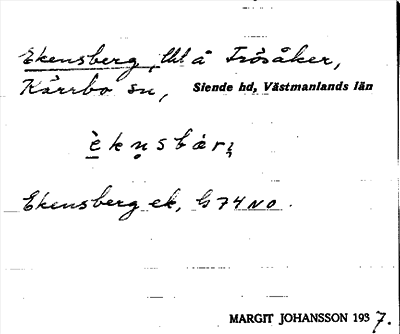 Ekensberg, lht å Frösåker,
Kärrbo sn, Siende hd, Västmanlands län
è k n̥ s b ä r j
Ekensberg ek, G 74 NO.
MARGIT JOHANSSON 1937.